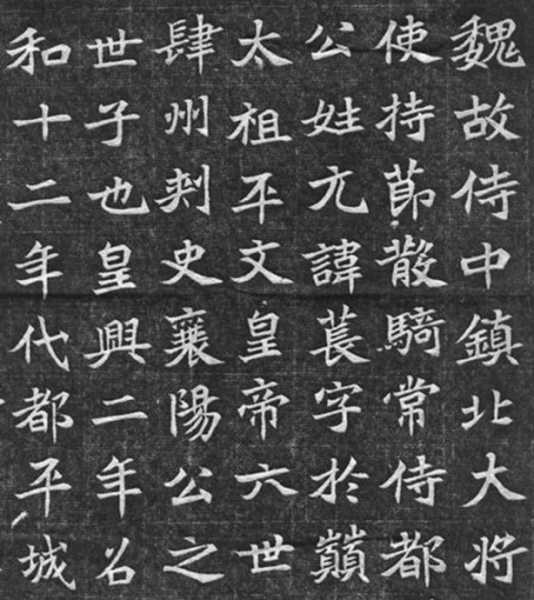 魏故侍中鎮北大將
使持節散騎常侍都
公姓元諱萇字於巔
太祖平文皇帝六世
肆州刾史襄陽公之
世子也皇興二年召
和十二年代都平城